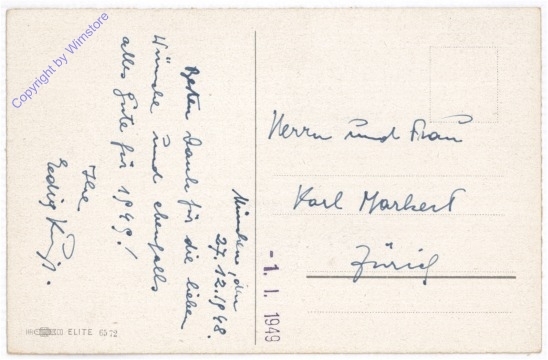 München, den
27.12.1948.
Besten Dank für die lieben
Wünsche und ebenfalls
alles Gute für 1949!
Ihre
Herrn und Frau
Karl Markert
Zürich
- 1. I. 1949
ELITE 6572
Copyright by Wimstore